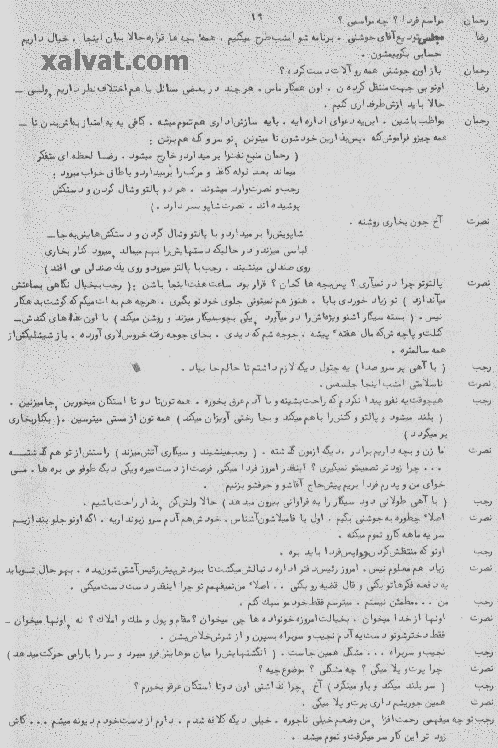 ۱۹
رحمان مراسم فردا؟ چه مراسمی؟
رضا مجلس تودیع آقای جوشنی. برنامه شو امشب طرح میکنیم. همهٔ بچه ها قراره حالا بیان اینجا. خیال داریم
حسابی بکوبیمشون.
xalvat.com
رحمان باز اون جوشنی همه رو آلات دست کرد؟
رضا اونو بی جهت منتقل کرده ن. اون همکار ماس. هر چند در بعضی مسائل با هم اختلاف نظر داریم ولی —
حالا باید ازش طرفداری کنیم.
رحمان مواظب باشین. این یه دعوای اداره ایه. بایه سازش اداری هم تموم میشه. کافی یه یه امتیاز بهاش بدن تا —
همه چیزو فراموش کنه. پس بذارین خودشون تا میتونن تو سرو کله هم بزنن:
( رحمان منبع نفتو بر میدارد و خارج میشود. رضا لحظه ای متفکر
میماند بعد لوله کاغذ و مرکب را برمیدارد و با طاقی خواب میرود:
رجب و نصرت وارد میشوند. هر دو پالتو و شال گردن و دستکش
پوشیده اند. نصرت شاپو سر دارد.)
نصرت آخ جون بخاری روشنه.
شاپویش را بر میدارد و با پالتو و شال گردن و دستکش هایش به جا —
لباسی میزند و در حالیکه دستهایش را بهم میمالد میرود کنار بخاری
روی صندلی مینشیند. رجب با پالتو میرود و روی یك صندلی می افتد)
نصرت پالتوتو چرا در نمیآری؟ پس بچه ها کجان؟ قرار بود ساعت هفت اینجا باشن :( رجب بخیال نگاهی بساعتش
میاندازد) تو زیاد خوردی بابا. هنوز هم نمیتونی جلوی خود تو بگیری. هرچه هم به ات میگم که گوشت بدهکار
نیس. ( بسته سیگار اشنو ویژه اش را در میآورد یکی بچوب سیگار میزند و روشن میکند) با اون غذاهای گندش —
کتلت و پاچه ش که مال هفته پیشه. جوجه شم که دیدی. بجای جوجه رفته خروس لاری آورده. باز شیشلیکش از
همه سالمتره.
رجب ( با آهی پر سرو صدا) یه جتول دیگه لازم داشتم تا حالم جا بیاد.
نصرت ناسلامتی امشب اینجا جلسه س.
رجب هیچوقت یه نفرو پیدا نکردم که راحت بشینه و با آدم عرق بخوره. همه تون تا دو تا استکان میخورین جا میزنین.
( بلند میشود و پالتو و کتش را با هم میکند و بجا رختی آویزان میکند) همه تون از مستی میترسین.( بکنار بخاری
بر میگردد)
نصرت ما زن و بچه داریم برادر. دیگه ازمون گذشته. ( رجب مینشیند و سیگاری آتش میزند) راستش از تو هم گذشته
... چرا زود تر تصمیمتو نمیگیری؟ اینقدر امروز فردا میکنی فرصت از دست میره و یکی دیگه طوفو می بره ها. می
خوای من و پدرم فردا بریم پیش حاج آقا شو و حرفشو بزنیم.
رجب ( با آهی طولانی دود سیگار را به فراوانی بیرون میدهد) حالا ولش کن بذار راحت باشیم.
نصرت اصلاً چطوره به جوشنی بگیم. اول با فامیلاشون آشناس. خودش هم آدم سرو زبونداریه. اگه اونو جلو بندازیم
سر یه ماهه کارو تموم میکنه.
رجب اونو که منتقلش کردن. پس فردا باید بره.
نصرت زیاد هم معلوم نیس. امروز رئیس دفتر اداره دنبالش میگشت تا ببردش پیش رئیس آشتی شون بده. بهر حال تو باید
یه دفعه فکرهاتو بکنی و قال قضیه رو بکنی... اصلاً من نمیفهمم تو چرا اینقدر دست دست میکنی.
رجب من... مطمئن نیستم. میترسم فقط خود مو سبك کنم.
نصرت اونها از خدا میخوان. بخیالت امروزه خونواده ها چی میخوان؟ مقام و پول و ملك و املاك؟ نه اونها میخوان —
فقط دخترشونو دست یه آدم نجیب و سر براه بسپرن و از شرش خلاص بشن.
رجب نجیب و سر براه... مشکل همین جاست. ( انگشتهایش را میان موهایش فرو میبرد و سر را بارامی حرکت میدهد)
نصرت چرا پرت و پلا میگی؟ چه مشکلی؟ موضوع چیه؟
رجب ( سر بلند میکند و باو مینگرد) آخ چرا نذاشتی اون دو تا استکان عرقو بخورم؟
نصرت همین جوریشم داری پرت و پلا میگی.
رجب تو چه میفهمی رحمت افزا. من وضعم خیلی ناجوره. خیلی دیگه کلافه شدم. دارم از دست خودم دیونه میشم... کاش
زود تر این کار سر میگرفت و تموم میشد.